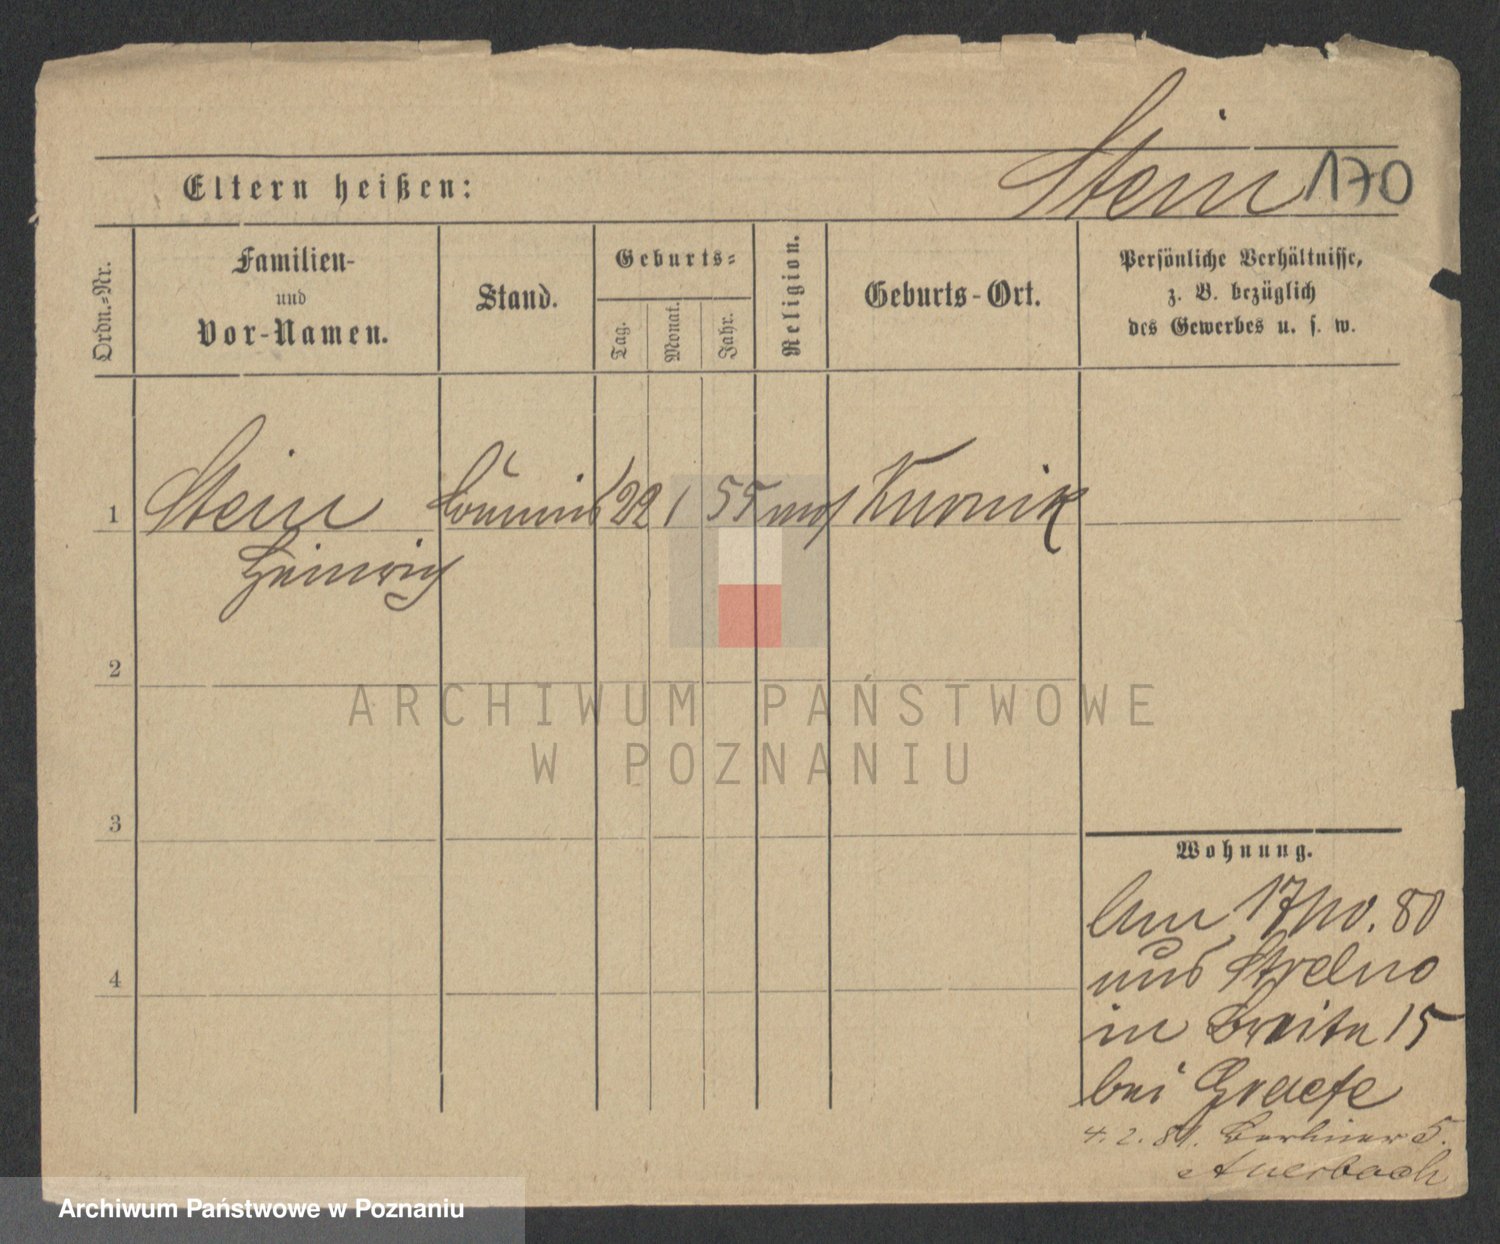 Stein 170
Eltern heißen:
Ordn.=Nr.
Familien-
und
Vor-Namen.
Stand.
Geburts=
Tag.
Monat.
Jahr.
Religion.
Geburts-Ort.
Persönliche Verhältnisse,
z. B. bezüglich
des Gewerbes u. s. w.
1 Stein Commis 22 1 55 mos Kurnik
Heinrich
2
3
4
ARCHIWUM PAŃSTWOWE
W POZNANIU
Wohnung.
17/10. 80
aus Strelno
in Breite 15
bei Graefe
4. 2. 81. Berliner 5.
Auerbach
Archiwum Państwowe w Poznaniu